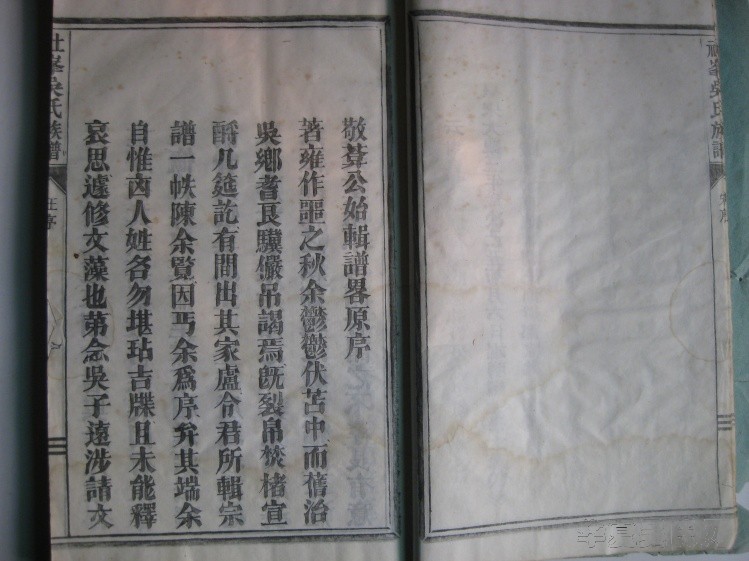 社峯吳氏族譜
敬葦公始輯譜畧原序
著雍作噩之秋余鬱鬱伏苫中而舊治
吳鄉耆艮驥儼吊謁焉旣裂帛焚楮宣
酹几筵訖有間出其家盧令君所輯宗
譜一帙陳余覽因丐余爲序弁其端余
自惟凶人姓名勿堪玷吉牒且未能釋
哀思遽修文藻也第念吳子遠涉請文
社峯吳氏族譜
汪序